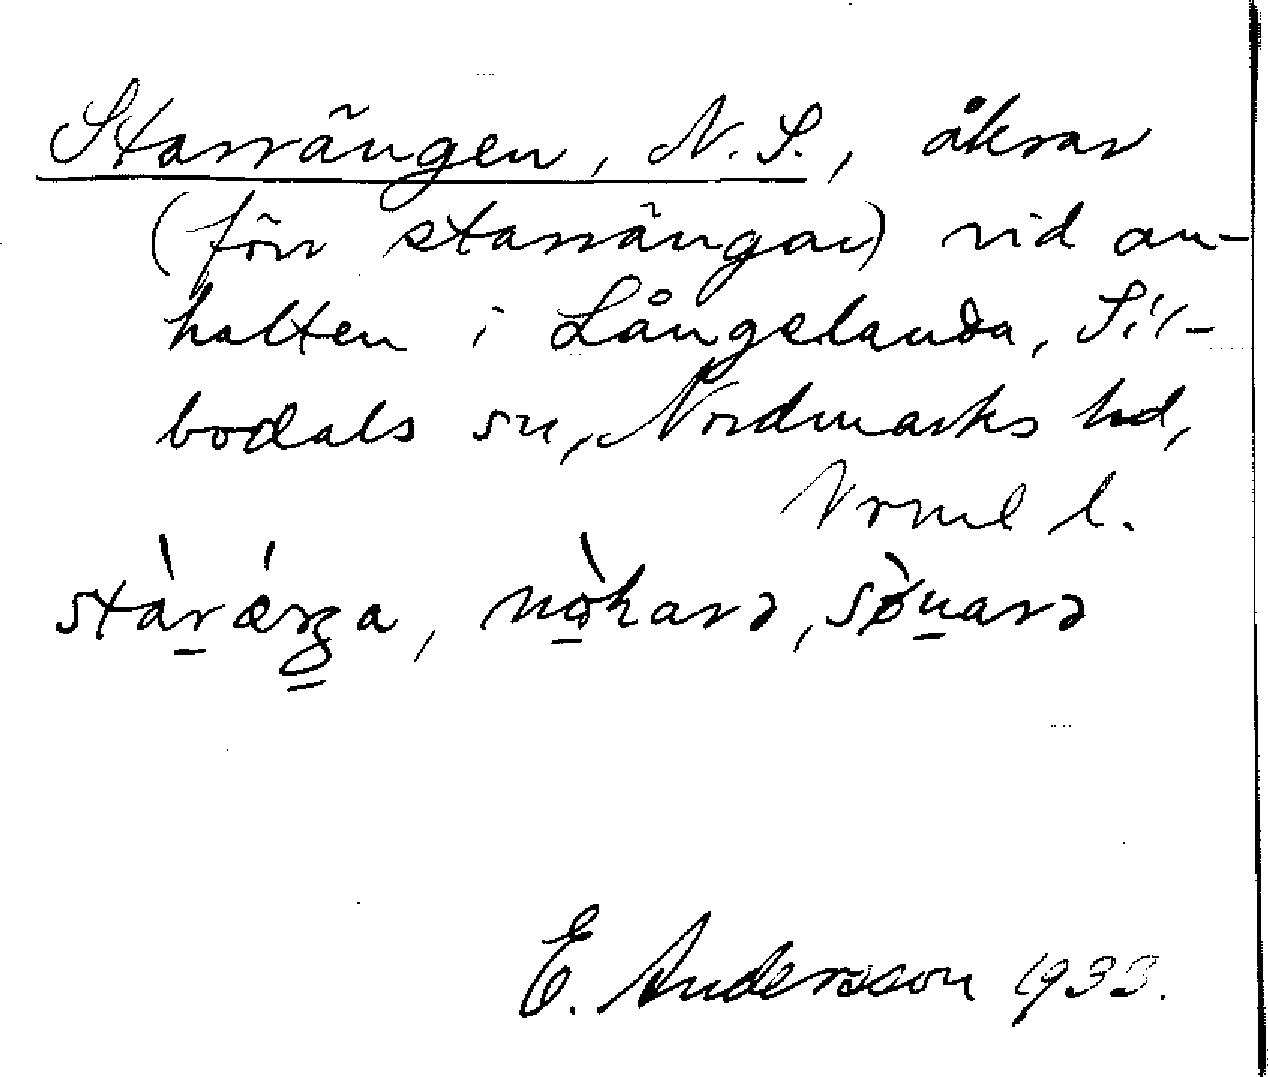 Starrängen, N. S., åkrar
(förr starrängar) vid an-
halten i Långelanda, Sil-
bodals sn, Nordmarks hd,
Vrml l.
E. Andersson 1933.